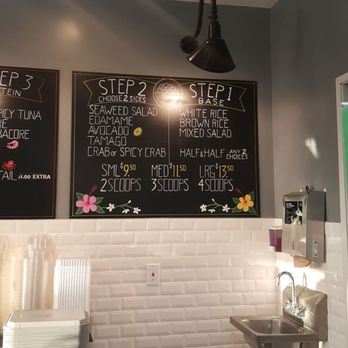 STEP 3
SPICY TUNA
STEP 2
CHOOSE 2 SIDES
SEAWEED SALAD
EDAMAME
AVOCADO
TAMAGO
CRAB OR SPICY CRAB
STEP 1
BASE
WHITE RICE
BROWN RICE
MIXED SALAD
HALF & HALF - ANY 2
CHOICES
SML $9.50
2 SCOOPS
MED $11.50
3 SCOOPS
LRG $13.50
4 SCOOPS
$1.00 EXTRA